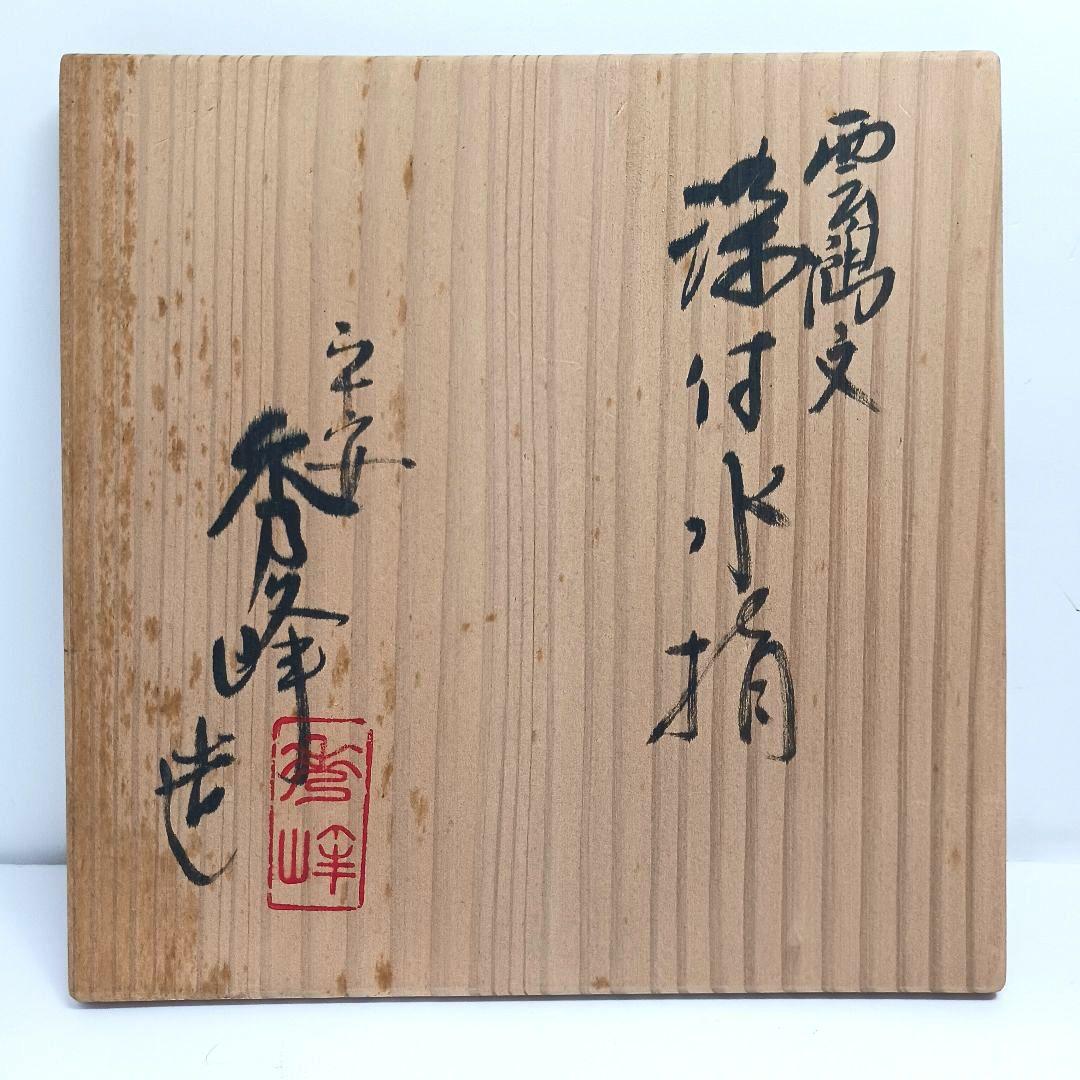 雲鶴文
染付水指
平安
秀峰
造
秀峰